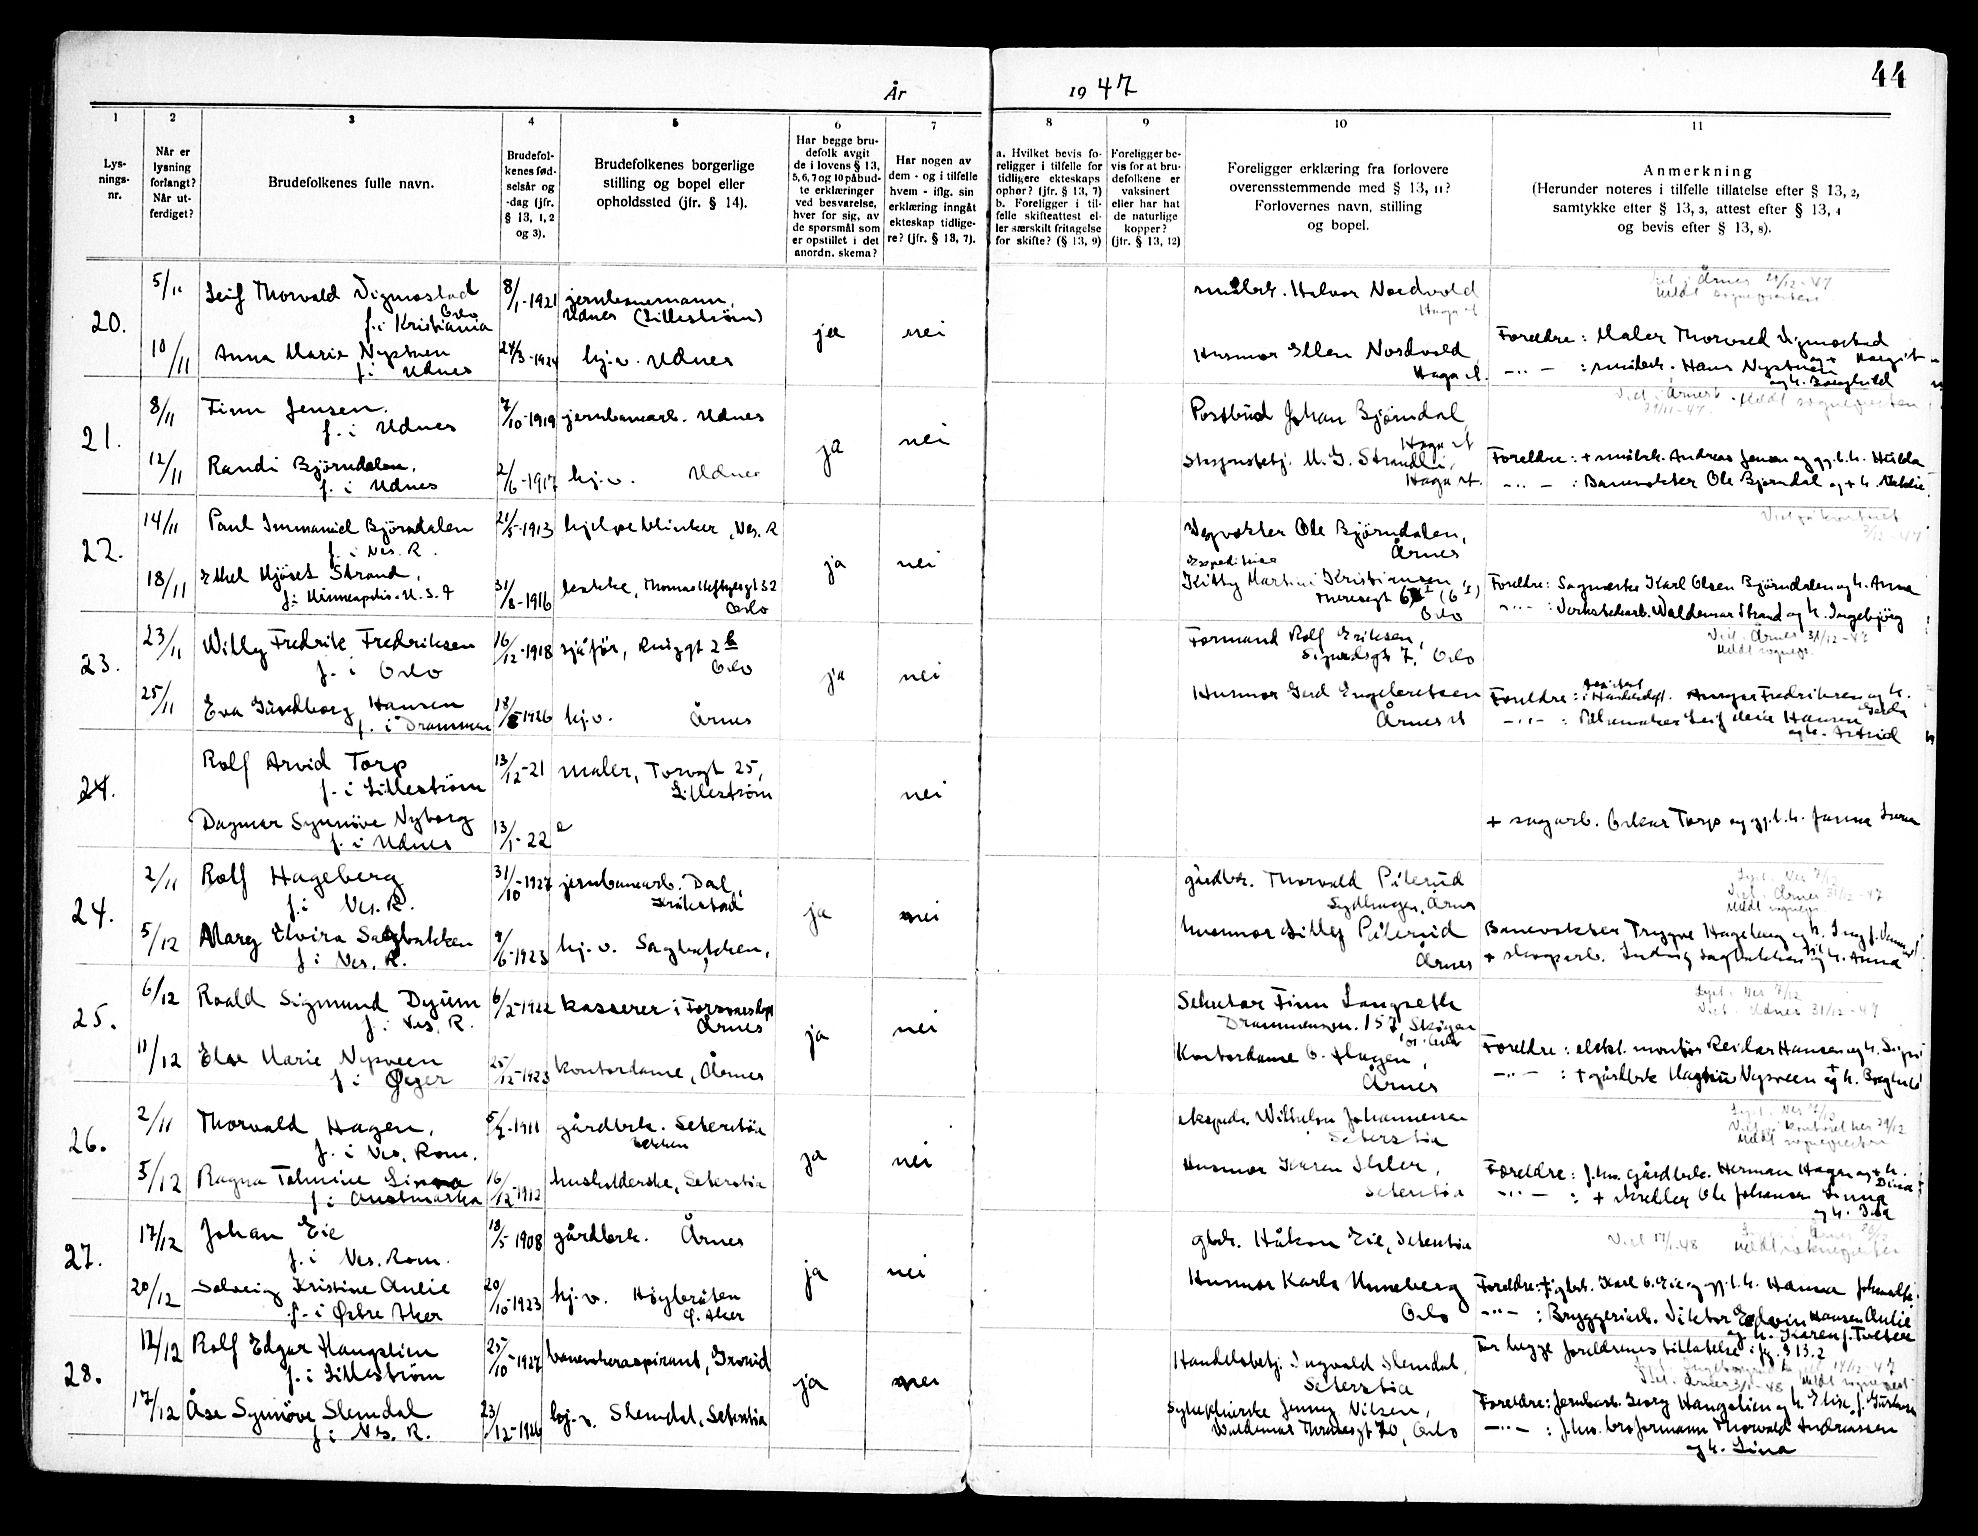 44
År 1947
1 2 3 4 5 6 7 8 9 10 11
Lysnings-nr.
Når er lysning forlangt? Når utferdiget?
Brudefolkenes fulle navn.
Brudefolkenes fødselsår og -dag (jfr. § 13, 1, 2 og 3).
Brudefolkenes borgerlige stilling og bopel eller opholdssted (jfr. § 14).
Har begge brudefolk avgit de i lovens § 13, 5, 6, 7 og 10 påbudte erklæringer ved besvarelse, hver for sig, av de spørsmål som er opstillet i det anordn. skema?
Har nogen av dem - og i tilfelle hvem - iflg. sin erklæring inngåt ekteskap tidligere? (jfr. § 13, 7).
a. Hvilket bevis foreligger i tilfelle for tidligere ekteskaps ophør? (jfr. § 13, 7) b. Foreligger i tilfelle skifteattest eller særskilt fritagelse for skifte? (§ 13, 9)
Foreligger bevis for at brudefolkene er vaksinert eller har hat de naturlige kopper? (jfr. § 13, 12)
Foreligger erklæring fra forlovere overensstemmende med § 13, 11? Forlovernes navn, stilling og bopel.
Anmerkning (Herunder noteres i tilfelle tillatelse efter § 13, 2, samtykke efter § 13, 3, attest efter § 13, 4 og bevis efter § 13, 8).
20. 5/11 Leif Thorvald Vigmostad 8/1-1921 jernbanemann, Udnes (Lillestrøm) ja nei
f. i Kristiania Oslo
småbrk. Halvor Nordvold Haga st
Viet i Årnes 21/12-47 Meldt sognepresten
10/11 Anna Marie Nystuen 24/3-1924 hj.v. Udnes
f. i Udnes
Husmor Ellen Nordvold, Haga st.
Foreldre: Maler Thorvald Vigmostad og + Margit
-"- : småbrk. Hans Nystuen og h. Borghild
21. 8/11 Finn Jensen, 7/10-1919 jernbanearb. Udnes ja nei
f. i Udnes
Postbud Johan Bjørndal, Haga st
12/11 Randi Bjørndalen, 2/6-1917 hj.v. Udnes
f. i Udnes
M. G. Strandli, Haga st.
Foreldre: + småbrk. Andreas Jensen og gj.l.h. Hulda
-"- : Banevokter Ole Bjørndal og + h. Nikoline
22. 14/11 Paul Immanuel Bjørndalen 21/5-1913 hjelpeblinker, Nes. R ja nei
f. i Nes. R.
Vegvokter Ole Bjørndalen, Årnes
18/11 Ethel Mjøset Strand, 31/8-1916 Thomas Heftyesgt 52 Oslo
f. i Minneapolis - U.S.A
Kitty Martini Kristiansen, Theresegt Oslo
Foreldre: Sagmester Karl Olsen Bjørndalen og h. Anna
-"- : Verkstedarb. Waldemar Strand og h. Ingebjørg
23. 23/11 Willy Fredrik Fredriksen 16/12-1918 sjåfør, 2 b Oslo ja nei
f. i Oslo
Formand Rolf Eriksen, Sigurdsgt 7, Oslo
Viet i Årnes 31/12-47 Meldt sognepr.
25/11 Eva Hansen 18/5-1926 hj.v. Årnes
f. i Drammen
Husmor Gerd Engebretsen Årnes st
Foreldre: Ansgar Fredriksen og h. Gerda
-"- : Leif Hansen og h. Astrid
24. Rolf Arvid Torp 13/12-21 maler, Torvgt 25, Lillestrøm nei
f. i Lillestrøm
Dagmar Synnøve Nyborg 13/1-22
f. i Udnes
+ sagarb. Oskar Torp og gj.l.h.
24. 2/11 Rolf Hageberg 31/10-1927 jernbanearb. Dal, ja nei
f. i Nes. R.
gårdbr. Thorvald Pilerud Årnes
Viet i Årnes 31/12-47 Meldt sognepr.
5/12 Mary Elvira Sagbakken 9/6-1923 hj.v. Sagbakken,
f. i Nes. R.
husmor Lilly Pilerud Årnes
Banevokter Trygve Hageberg og h.
+ skogarb. Ludvig Sagbakken og h. Anna
25. 6/12 Roald Sigmund Dyum 6/2-1922 kasserer i Årnes ja nei
f. i Nes. R.
Sekretær Finn Langseth Drammensvn. 157, Skøyen
Lyst i Nes 7/12
Viet i Udnes 31/12-47
11/12 Else Marie Nysveen 25/12-1923 kontordame, Årnes
f. i Øyer
Kontordame O. Hagen, Årnes
Foreldre: elekt. montør Reidar Hansen og h.
-"- : + gårdbrk Nysveen og h. Borghild
26. 2/11 Thorvald Hagen, 5/7-1911 gårdbrk. Seterstøa ja nei
f. i Nes, Rom.
ekspedr. Wilhelm Johannessen Seterstøa
5/12 Ragna Linna 16/12-1912 husholderske, Seterstøa
f. i Austmarka
Husmor Karen Ihler, Seterstøa
Foreldre: f.hv. gårdbrk. Herman Hagen og + h. Dina
-"- : + Ole Johansen Linna og h. Ida
27. 17/12 Johan Eie 18/5-1908 gårdbrk. Årnes ja nei
f. i Nes. Rom.
gbrk. Håkon Eie, Seterstøa
Viet 17/1-48
20/12 Solveig Kristine Aulie 20/10-1923 hj.v. Høybråten Ø. Aker
f. i Østre Aker
Husmor Karla Unneberg Oslo
Foreldre: + gbrk. Karl O. Eie og gj.l.h. Hanna
-"- : Bryggeriarb. Viktor Edvin Hansen Aulie og h. Karen f. Tveter
28. 12/12 Rolf Edgar Haugslien 25/10-1927 baneaspirant, Grorud ja nei
f. i Lillestrøm
Handelsbetj. Ingvald Slemdal, Seterstøa
Før begge foreldrenes tillatelse jfr. § 13.2
17/12 Åse Synnøve Slemdal 23/12-1926 hj.v. Slemdal, Seterstøa
f. i Nes. R.
Sykepleierske Jenny Nilsen, Waldemar Thranesgt 70, Oslo
Foreldre: Jernbarb. Georg Haugslien og h. Elise
-"- : f.hv. broformann Thorvald Andreassen og h. Lina